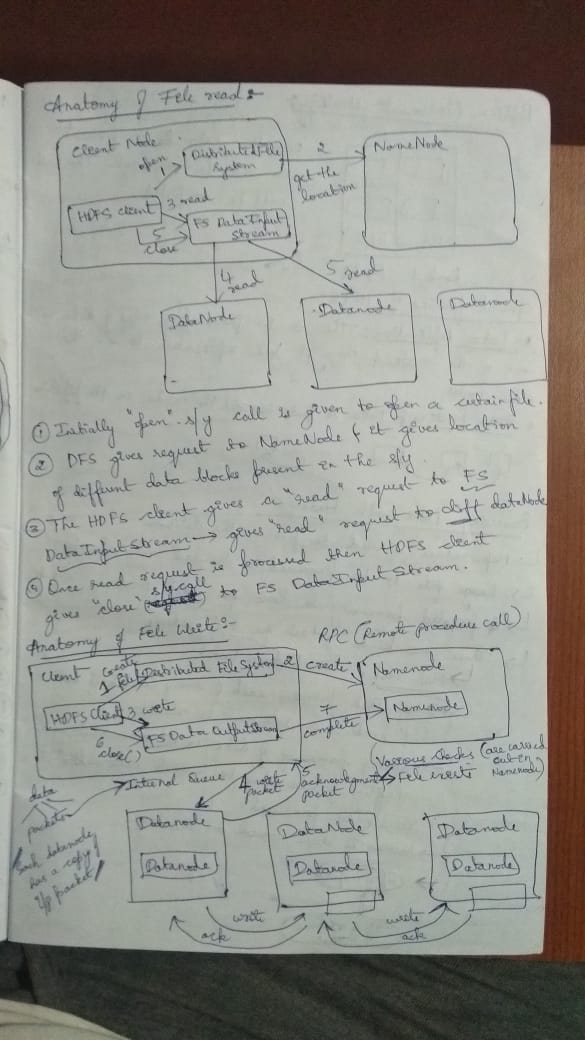 Anatomy of File read :-
Client Node
open
1
Distributed File
System
2
get the
location
NameNode
HDFS client
3 read
FS Data Input
Stream
5
close
4
read
5 read
DataNode
Datanode
Datanode
① Initially "open" s/y call is given to open a certain file.
② DFS gives request to NameNode & it gives location
of different data blocks present in the s/y.
③ The HDFS client gives a "read" request to FS
Data Input Stream → gives "read" request to diff dataNode
④ Once read request is processed then HDFS client
gives "close" s/y call to FS Data Input Stream.
Anatomy of File Write :-
RPC (Remote procedure call)
Client
create
1 file
Distributed File System
2 create
Namenode
HDFS Client
3 write
FS Data OutputStream
7
complete
Namenode
6
close()
Various checks (are carried
out in
Namenode)
File exists
data
packets
Internal Queue
4 write
packet
5
acknowledgment
packet
Each datanode
has a copy of
i/p packet
Datanode
Datanode
DataNode
Datanode
Datanode
Datanode
write
ack
write
ack